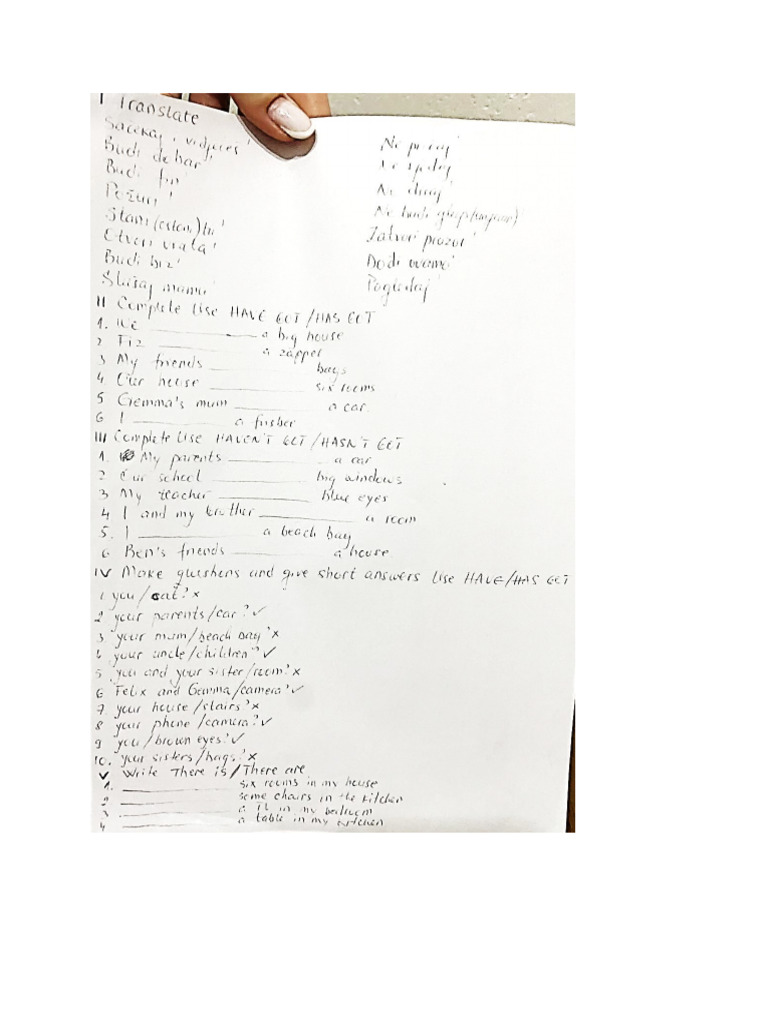 I Translate
Sačekaj, vidjećeš!
Budi dobar!
Budi fin!
Požuri!
Stani (ostani) tu!
Otvori vrata!
Budi brz!
Slušaj mamu!
Ne
Ne
Ne
Ne budi glup
Zatvori prozor!
Dođi ovamo!
Pogledaj!
II Complete Use HAVE GOT/HAS GOT
1. We __________ a big house
2 Tiz __________ a zapper
3 My friends __________ bags
4. Our house __________ six rooms
5 Gemma's mum __________ a car.
6 I __________ a frisbee
III Complete Use HAVEN'T GOT/HASN'T GOT
1. My parents __________ a car
2 Our school __________ big windows
3 My teacher __________ blue eyes
4 I and my brother __________ a room
5. I __________ a beach bag
6 Ben's friends __________ a house
IV Make questions and give short answers Use HAVE/HAS GOT
1 you/cat? x
2 your parents/car? ✓
3 your mum/beach bag? x
4 your uncle/children? ✓
5 you and your sister/room? x
6 Felix and Gemma/camera? ✓
7. your house/stairs? x
8 your phone/camera? ✓
9 you/brown eyes? ✓
10. your sisters/bags? x
V Write There is/There are
1. __________ six rooms in my house
2 __________ some chairs in the kitchen
3 __________ a TV in my bedroom
4 __________ a table in my kitchen